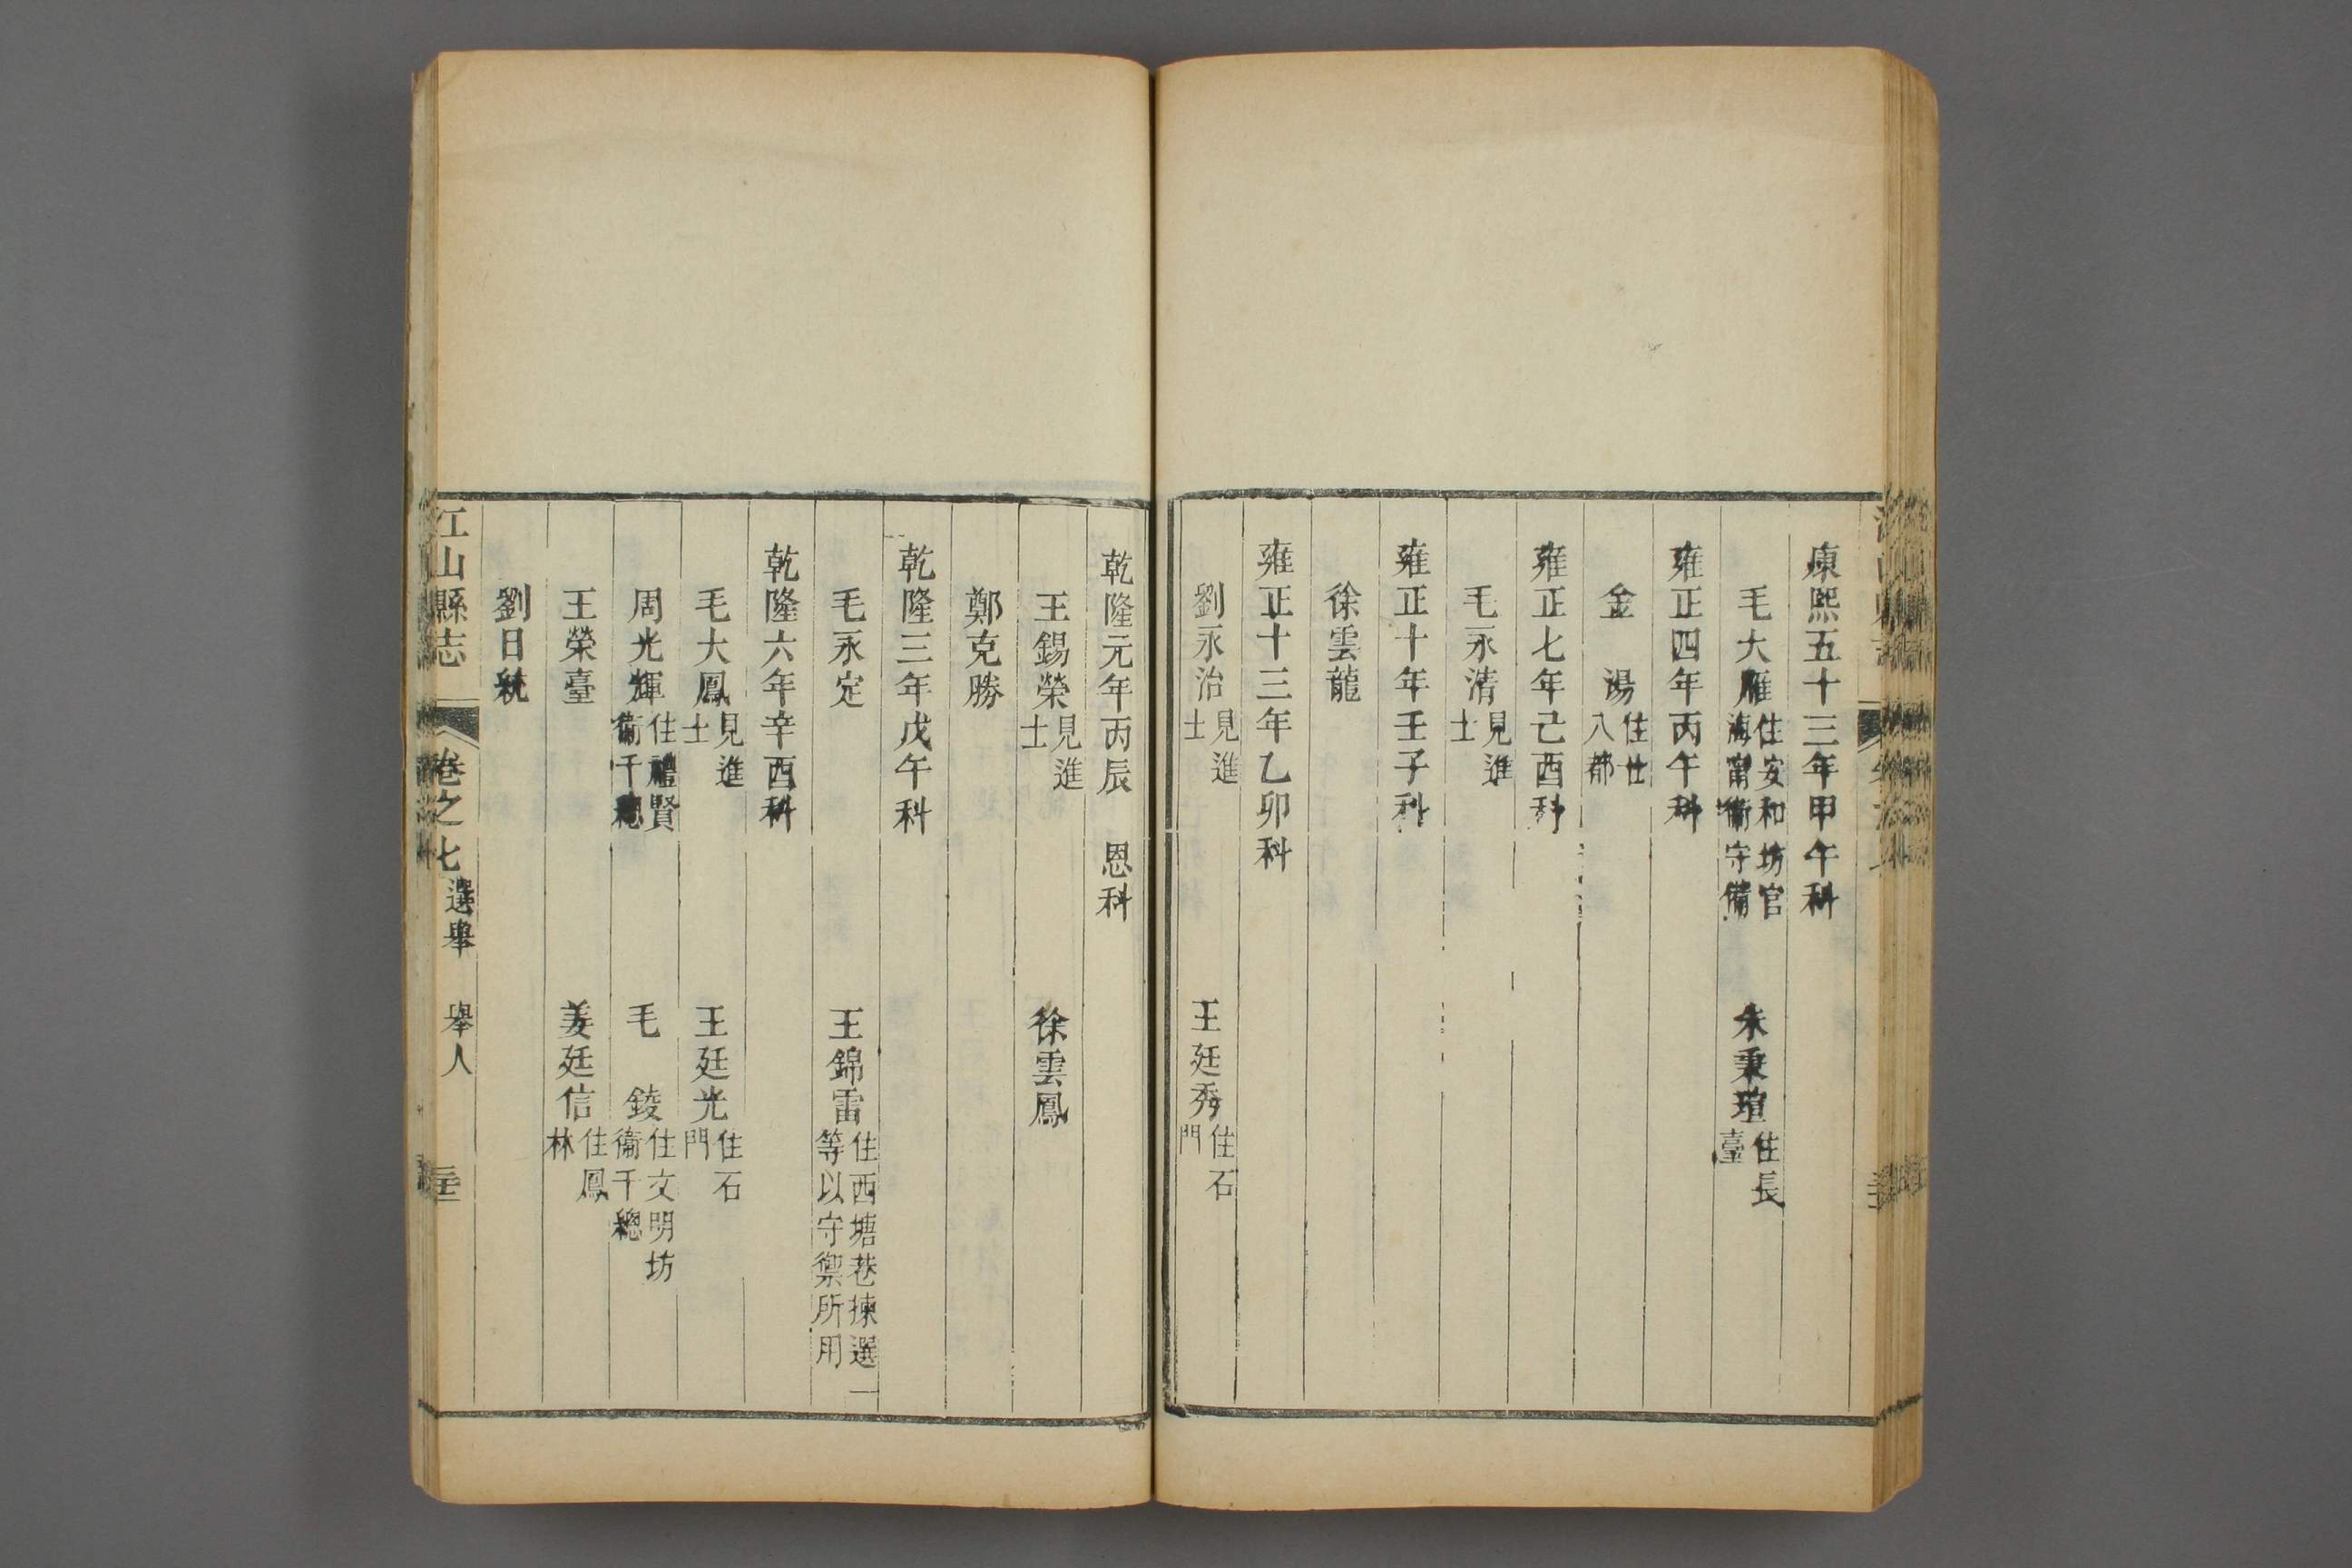 康熙五十三年甲午科
毛大雁住安和坊官海甯衞守備 朱秉瑄住長臺
雍正四年丙午科
金 湯住仕八都
雍正七年己酉科
毛永清見進士
雍正十年壬子科
徐雲龍
雍正十三年乙卯科
劉永治見進士 王廷秀住石門
乾隆元年丙辰 恩科
王錫榮見進士 徐雲鳳
鄭克勝
乾隆三年戊午科
毛永定 王錦雷住西塘巷揀選一等以守禦所用
乾隆六年辛酉科
毛大鳳見進士 王廷光住石門
周光輝住禮賢衞千總 毛 錂住文明坊衞千總
王榮臺 姜廷信住鳳林
劉日統
江山縣志 卷之七 選舉 舉人